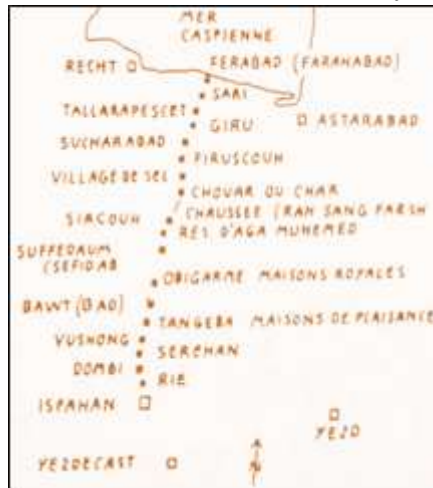 MER
CASPIENNE
FERABAD (FARAHABAD)
RECHT
SARI
TALLARAPESCET
GIRU
ASTARABAD
SUCHARABAD
PIRUSCOUH
VILLAGE DE SEL
CHOUAR OU CHAR
SIRCOUH
CHAUSSEE (RAH SANG FARSH
RES D'AGA MUHEMED
SUFFEDAUM
(SEFIDAB
OBIGARME MAISONS ROYALES
BAWT (BAD)
TANGEBA MAISONS DE PLAISANCE
VUSHONG
SERCHAN
DOMBI
RIE
ISPAHAN
YEZD
YEZDECAST
N